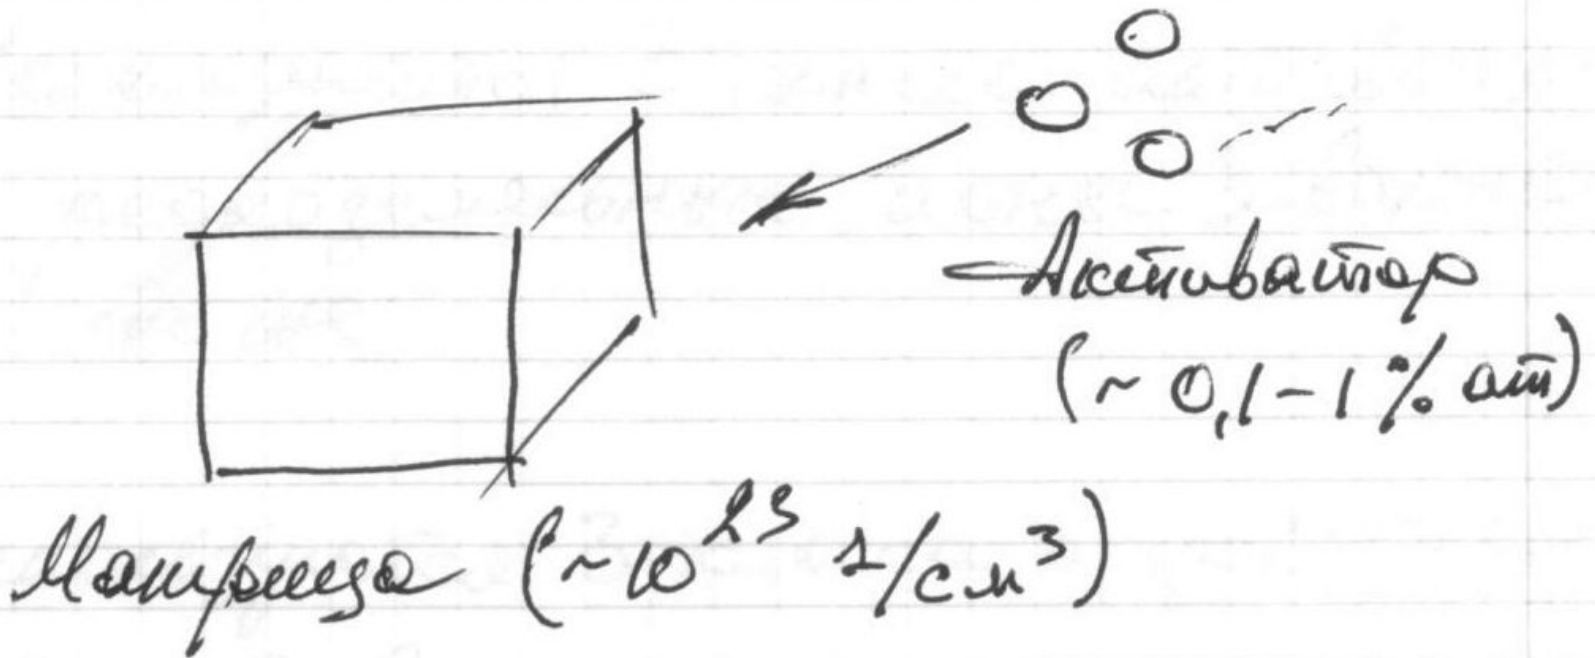 Активатор
(~ 0,1 - 1 % ат)
Матрица (~10²³ 1/см³)